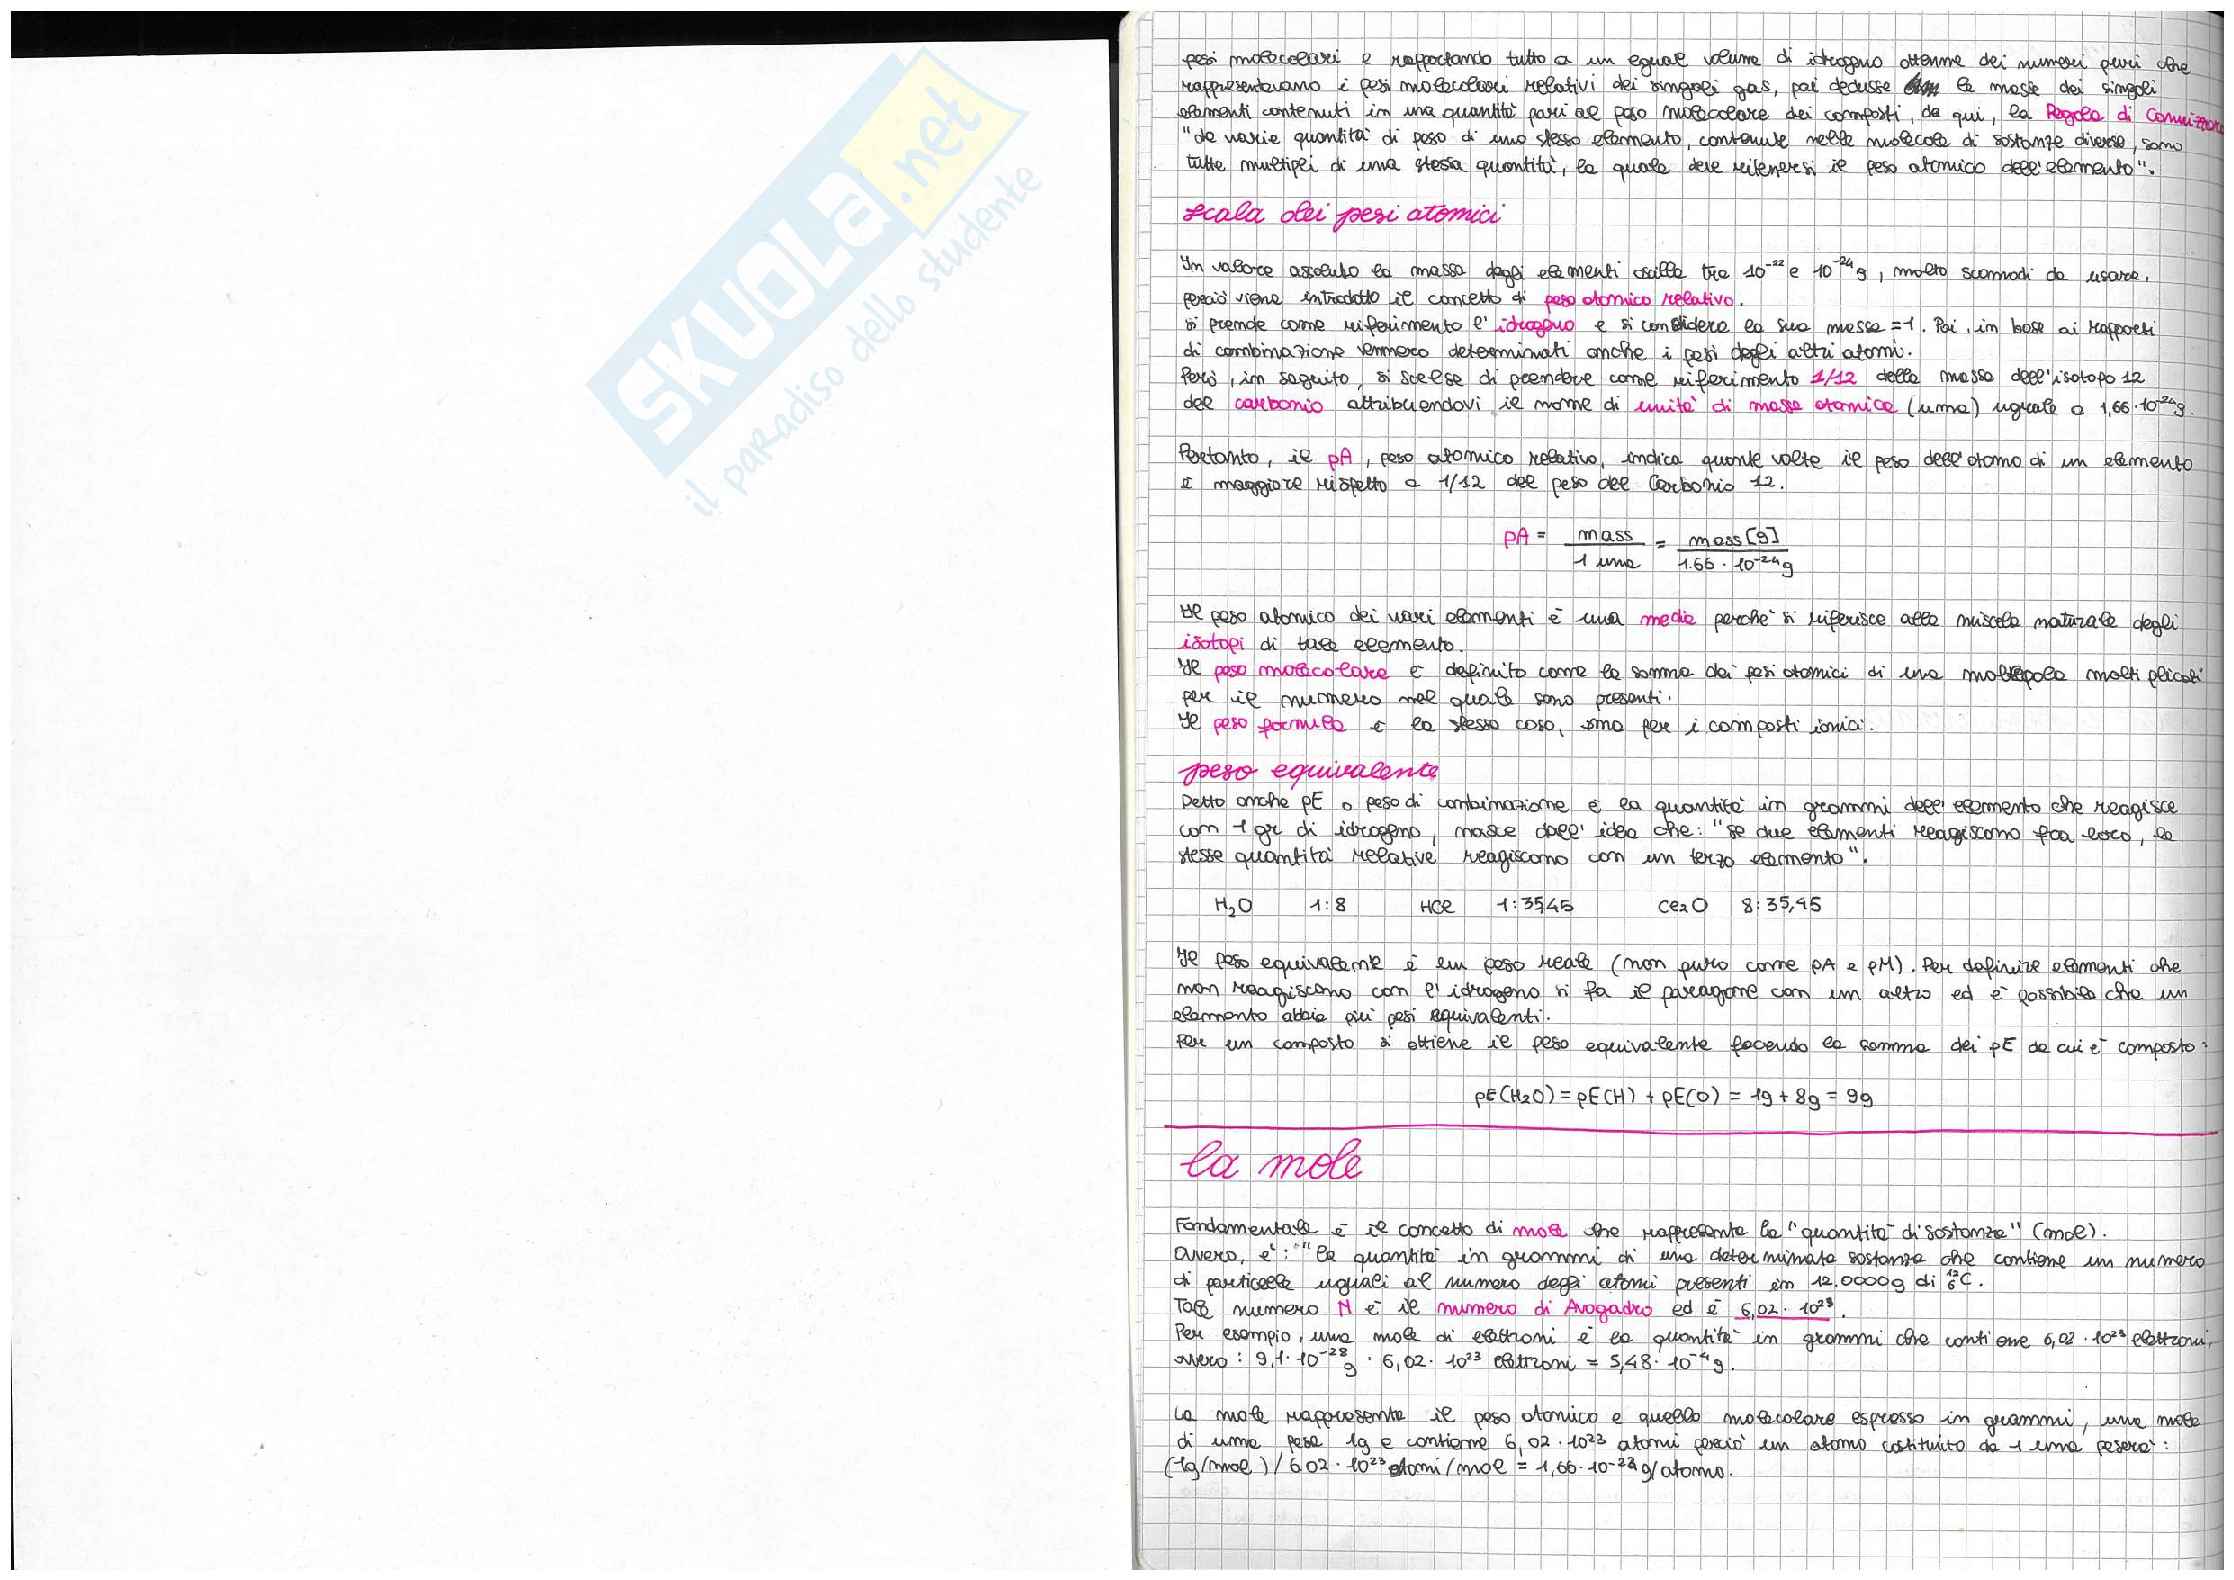 SKUOLA.net
il paradiso dello studente
pesi molecolari e rapportando tutto a un egual volume di idrogeno ottenne dei numeri puri che
rappresentavano i pesi molecolari relativi dei singoli gas, poi dedusse le masse dei singoli
elementi contenuti in una quantità pari al peso molecolare dei composti, da qui, la Regola di Cannizzaro
"le varie quantità di peso di uno stesso elemento, contenute nelle molecole di sostanze diverse, sono
tutte multipli di una stessa quantità, la quale deve ritenersi il peso atomico dell'elemento".
scala dei pesi atomici
In valore assoluto la massa degli elementi oscilla tra 10⁻²² e 10⁻²⁴ g, molto scomodi da usare,
perciò viene introdotto il concetto di peso atomico relativo.
si prende come riferimento l'idrogeno e si considera la sua massa =1. Poi, in base ai rapporti
di combinazione vennero determinati anche i pesi degli altri atomi.
Però, in seguito, si scelse di prendere come riferimento 1/12 della massa dell'isotopo 12
del carbonio attribuendovi il nome di unità di massa atomica (uma) uguale a 1,66·10⁻²⁴g
Pertanto, il pA, peso atomico relativo, indica quante volte il peso dell'atomo di un elemento
è maggiore rispetto a 1/12 del peso del Carbonio 12.
pA = mass / 1 uma = mass [g] / 1.66 · 10⁻²⁴ g
Il peso atomico dei vari elementi è una media perché si riferisce alla miscela naturale degli
isotopi di tale elemento.
Il peso molecolare è definito come la somma dei pesi atomici di una molecola moltiplicati
per il numero nel quale sono presenti.
Il peso formula è la stessa cosa, ma per i composti ionici.
peso equivalente
Detto anche pE o peso di combinazione è la quantità in grammi dell'elemento che reagisce
con 1 gr di idrogeno, nasce dall'idea che: "se due elementi reagiscono fra loro, le
stesse quantità relative reagiscono con un terzo elemento".
H₂O 1:8 HCl 1:35,45 Cl₂O 8:35,45
Il peso equivalente è un peso reale (non puro come pA e pM). Per definire elementi che
non reagiscono con l'idrogeno si fa il paragone con un altro ed è possibile che un
elemento abbia più pesi equivalenti.
Per un composto si ottiene il peso equivalente facendo la somma dei pE da cui è composto:
pE(H₂O) = pE(H) + pE(O) = 1g + 8g = 9g
la mole
Fondamentale è il concetto di mole che rappresenta la "quantità di sostanza" (mol).
Ovvero, è: "la quantità in grammi di una determinata sostanza che contiene un numero
di particelle uguali al numero degli atomi presenti in 12.0000g di ¹²₆C.
Tale numero N è il numero di Avogadro ed è 6,02 · 10²³.
Per esempio, una mole di elettroni è la quantità in grammi che contiene 6,02 · 10²³ elettroni,
ovvero: 9,1·10⁻²⁸ g · 6,02 · 10²³ elettroni = 5,48 · 10⁻⁴ g.
La mole rappresenta il peso atomico e quello molecolare espresso in grammi, una mole
di uma pesa 1g e contiene 6,02 · 10²³ atomi perciò un atomo costituito da 1 uma peserà:
(1g/mol) / 6,02 · 10²³ atomi/mol = 1,66·10⁻²⁴ g/atomo.